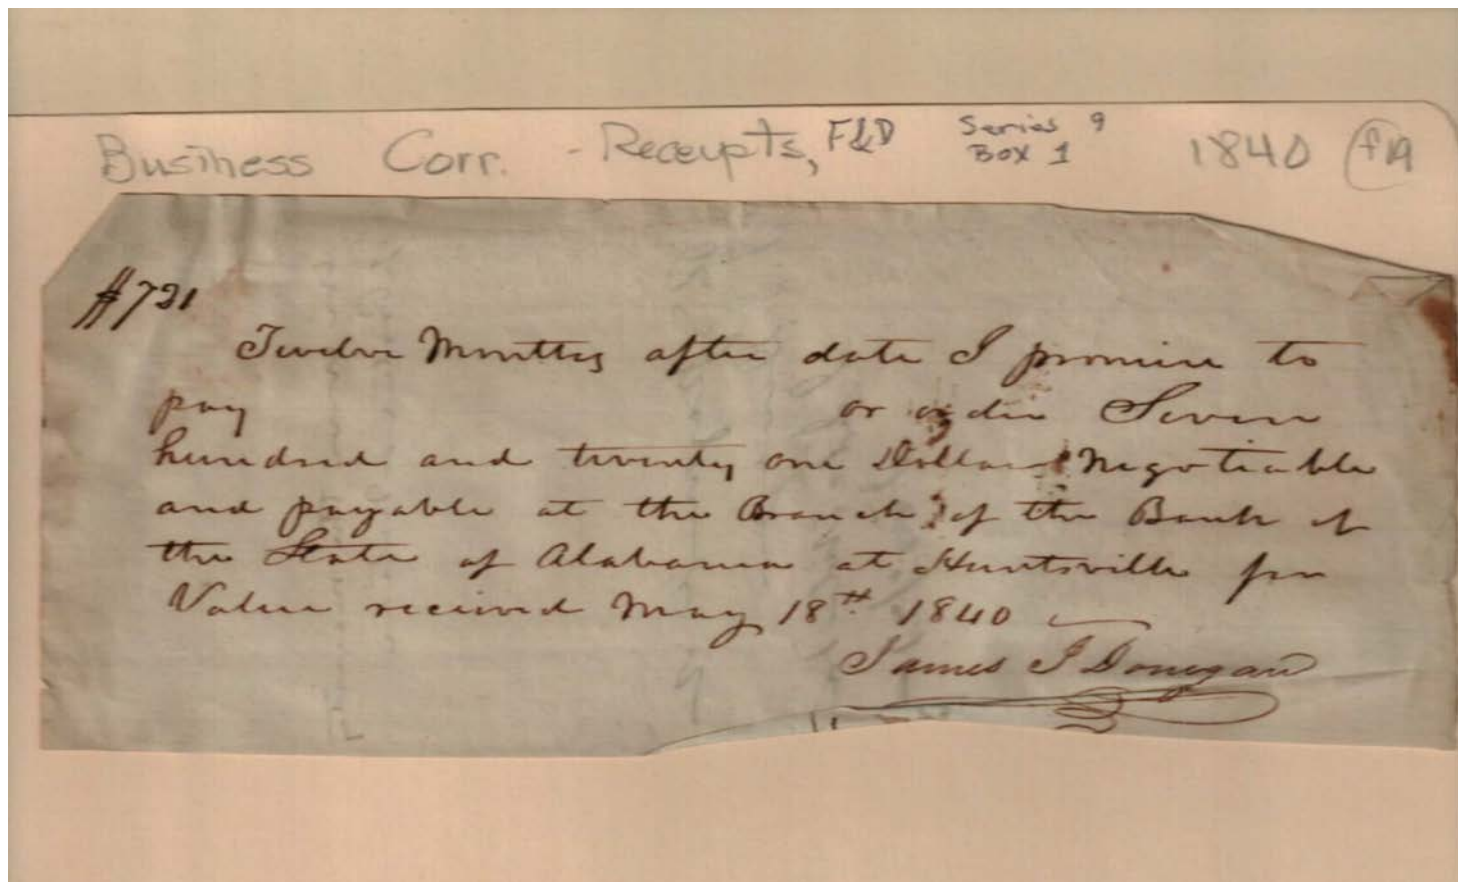 Business Corr. - Receipts, F&D Series 9 1840 f19
Box 1
$721
Twelve Months after date I promise to
pay or order Seven
hundred and twenty one Dollars Negotiable
and payable at the Branch of the Bank of
the State of Alabama at Huntsville for
Value received May 18th 1840
James J Donegan